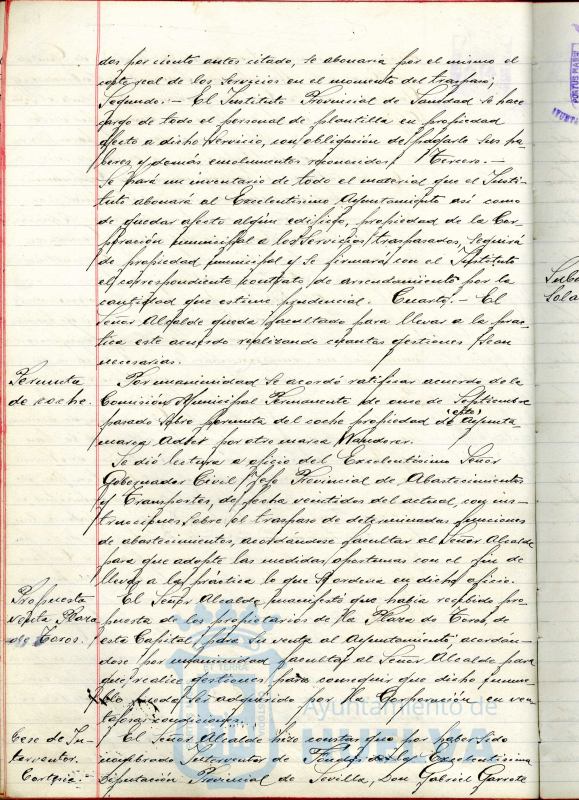 dos por ciento antes citado, se abonaria por el mismo el
coste real de los Servicios en el momento del traspaso;
Segundo:- El Instituto Provincial de Sanidad se hace
cargo de todo el personal de plantilla en propiedad
afecto a dicho Servicio, con obligación del pagarle sus ha-
beres y demás emolumentos reconocidos; Tercero.-
Se hará un inventario de todo el material que el Insti-
tuto abonará al Excelentísimo Ayuntamiento así como
de quedar afecto algún edificio, propiedad de la Cor-
poración municipal a los Servicios traspasados, seguirá
de propiedad municipal y se formará con el Instituto
el correspondiente contrato de arrendamiento por la
cantidad que estime prudencial. Cuarto.- El
Señor Alcalde queda facultado para llevar a la prac-
tica este acuerdo realizando cuantas gestiones sean
necesarias.
Permuta
de coche.
Por unanimidad se acordó ratificar acuerdo de la
Comisión Municipal Permanente de once de Septiembre
pasado sobre permuta del coche propiedad de (este) Ayunta-
marca Adler por otro marca Wanderer.
Se dió lectura a oficio del Excelentísimo Señor
Gobernador Civil Jefe Provincial de Abastecimientos
y Transportes, de fecha veintidos del actual, con ins-
trucciones sobre el traspaso de determinadas funciones
de abastecimientos, acordándose facultar al Señor Alcalde
para que adopte las medidas oportunas con el fin de
llevar a la práctica lo que se ordena en dicho oficio.
Propuesta
venta Plaza
de Toros.
El Señor Alcalde manifestó que había recibido pro-
puesta de los propietarios de la Plaza de Toros, de
esta Capital, para su venta al Ayuntamiento, acordán-
dose por unanimidad facultar al Señor Alcalde para
que realice gestiones para conseguir que dicho inmue-
ble pueda ser adquirido por la Corporación en ven-
tajosas condiciones.
Cese de In-
terventor.
El Señor Alcalde hizo constar que por haber sido
nombrado Interventor de Fondos de la Excelentísima
Diputación Provincial de Sevilla, Don Gabriel Garrote
Ayuntamiento de
HUELVA